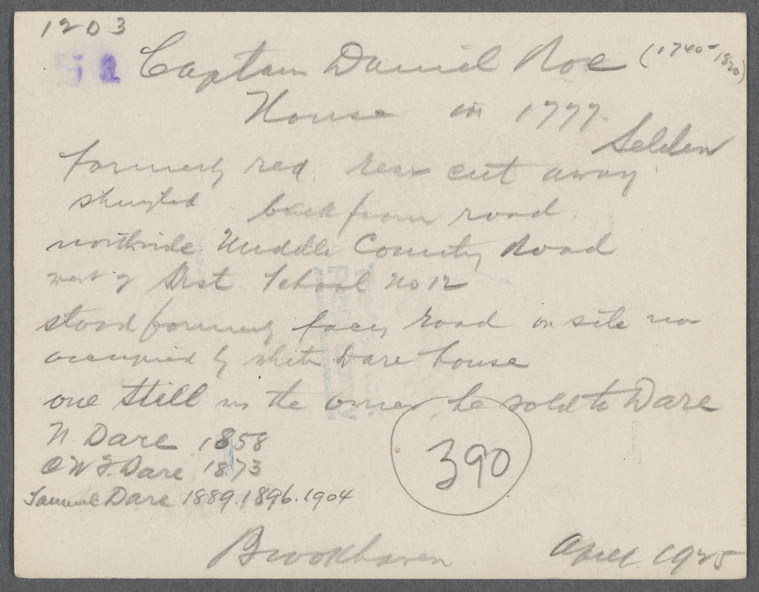 1203
Captain Daniel Roe (1740-1820)
House in 1777.
Selden
formerly red. rear cut away
shingled back from road
northside Middle Country Road
west of Dist School No 12
stood formerly facing road on site now
occupied by white Dare house
one Still was the owner he sold to Dare
N. Dare 1858
Dare 1873
Samuel Dare 1889.1896.1904
390
Brookhaven April 1925